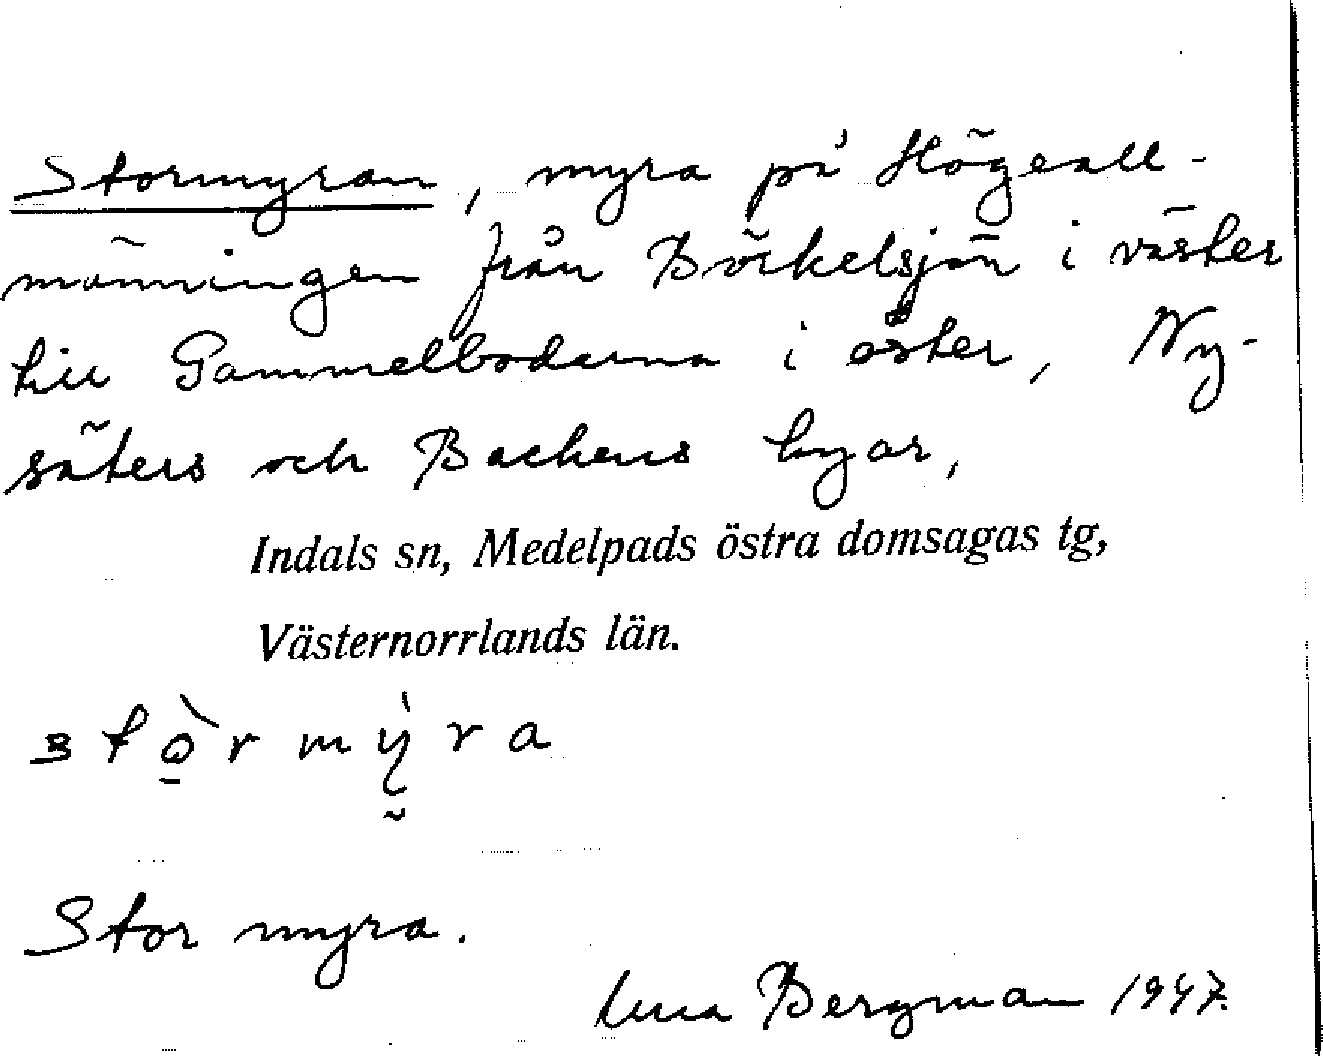 Stormyran, myra på Högeall-
männingen från Börkelsjön i väster
till Gammelbodarna i öster, Ny-
säters och Backens byar,
Indals sn, Medelpads östra domsagas tg,
Västernorrlands län.
stò̠rmỳ̆ra
Stor myra.
Bergman 1947.